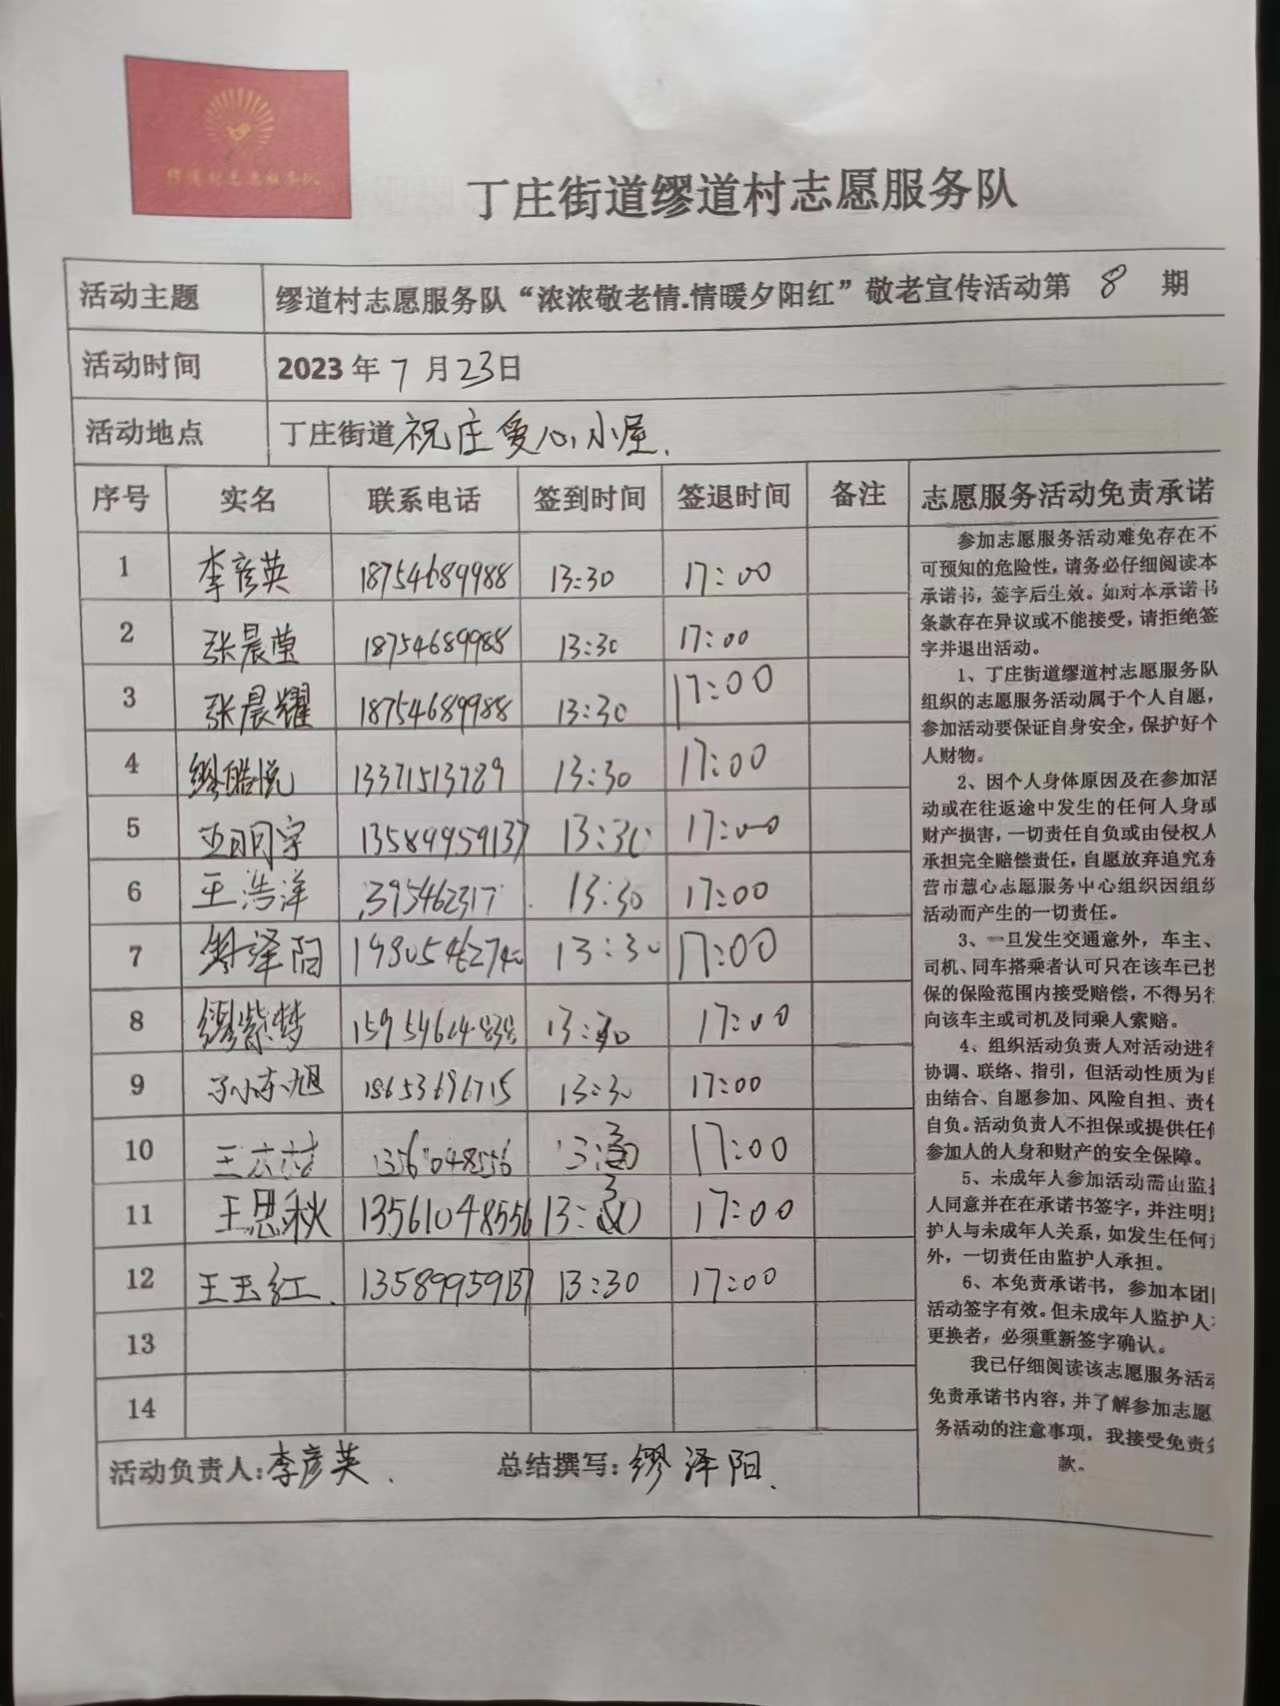 缪道村志愿服务队
丁庄街道缪道村志愿服务队
活动主题 缪道村志愿服务队“浓浓敬老情.情暖夕阳红”敬老宣传活动第 8 期
活动时间 2023 年 7 月 23日
活动地点 丁庄街道祝庄爱心小屋.
序号 实名 联系电话 签到时间 签退时间 备注
1 李彦英 18754689988 13:30 17:00
2 张晨莹 18754689988 13:30 17:00
3 张晨耀 18754689988 13:30 17:00
4 缪皓悦 13371513789 13:30 17:00
5 13589959137 13:30 17:00
6 王浩洋 395462317 13:30 17:00
7 缪泽阳 13:30 17:00
8 缪紫梦 13:30 17:00
9 18653696715 13:30 17:00
10 王 17:00
11 王思秋 13561048556 13:30 17:00
12 王玉红. 13589959137 13:30 17:00
13
14
活动负责人:李彦英. 总结撰写:缪泽阳.
志愿服务活动免责承诺
参加志愿服务活动难免存在不
可预知的危险性，请务必仔细阅读本
承诺书，签字后生效。如对本承诺书
条款存在异议或不能接受，请拒绝签
字并退出活动。
1、丁庄街道缪道村志愿服务队
组织的志愿服务活动属于个人自愿，
参加活动要保证自身安全，保护好个
人财物。
2、因个人身体原因及在参加活
动或在往返途中发生的任何人身或
财产损害，一切责任自负或由侵权人
承担完全赔偿责任，自愿放弃追究东
营市薏心志愿服务中心组织因组织
活动而产生的一切责任。
3、一旦发生交通意外，车主、
司机、同车搭乘者认可只在该车已投
保的保险范围内接受赔偿，不得另行
向该车主或司机及同乘人索赔。
4、组织活动负责人对活动进行
协调、联络、指引，但活动性质为自
由结合、自愿参加、风险自担、责任
自负。活动负责人不担保或提供任何
参加人的人身和财产的安全保障。
5、未成年人参加活动需由监
人同意并在在承诺书签字，并注明
护人与未成年人关系，如发生任何
外，一切责任由监护人承担。
6、本免责承诺书，参加本团
活动签字有效。但未成年人监护人
更换者，必须重新签字确认。
我已仔细阅读该志愿服务活动
免责承诺书内容，并了解参加志愿
务活动的注意事项，我接受免责条
款。